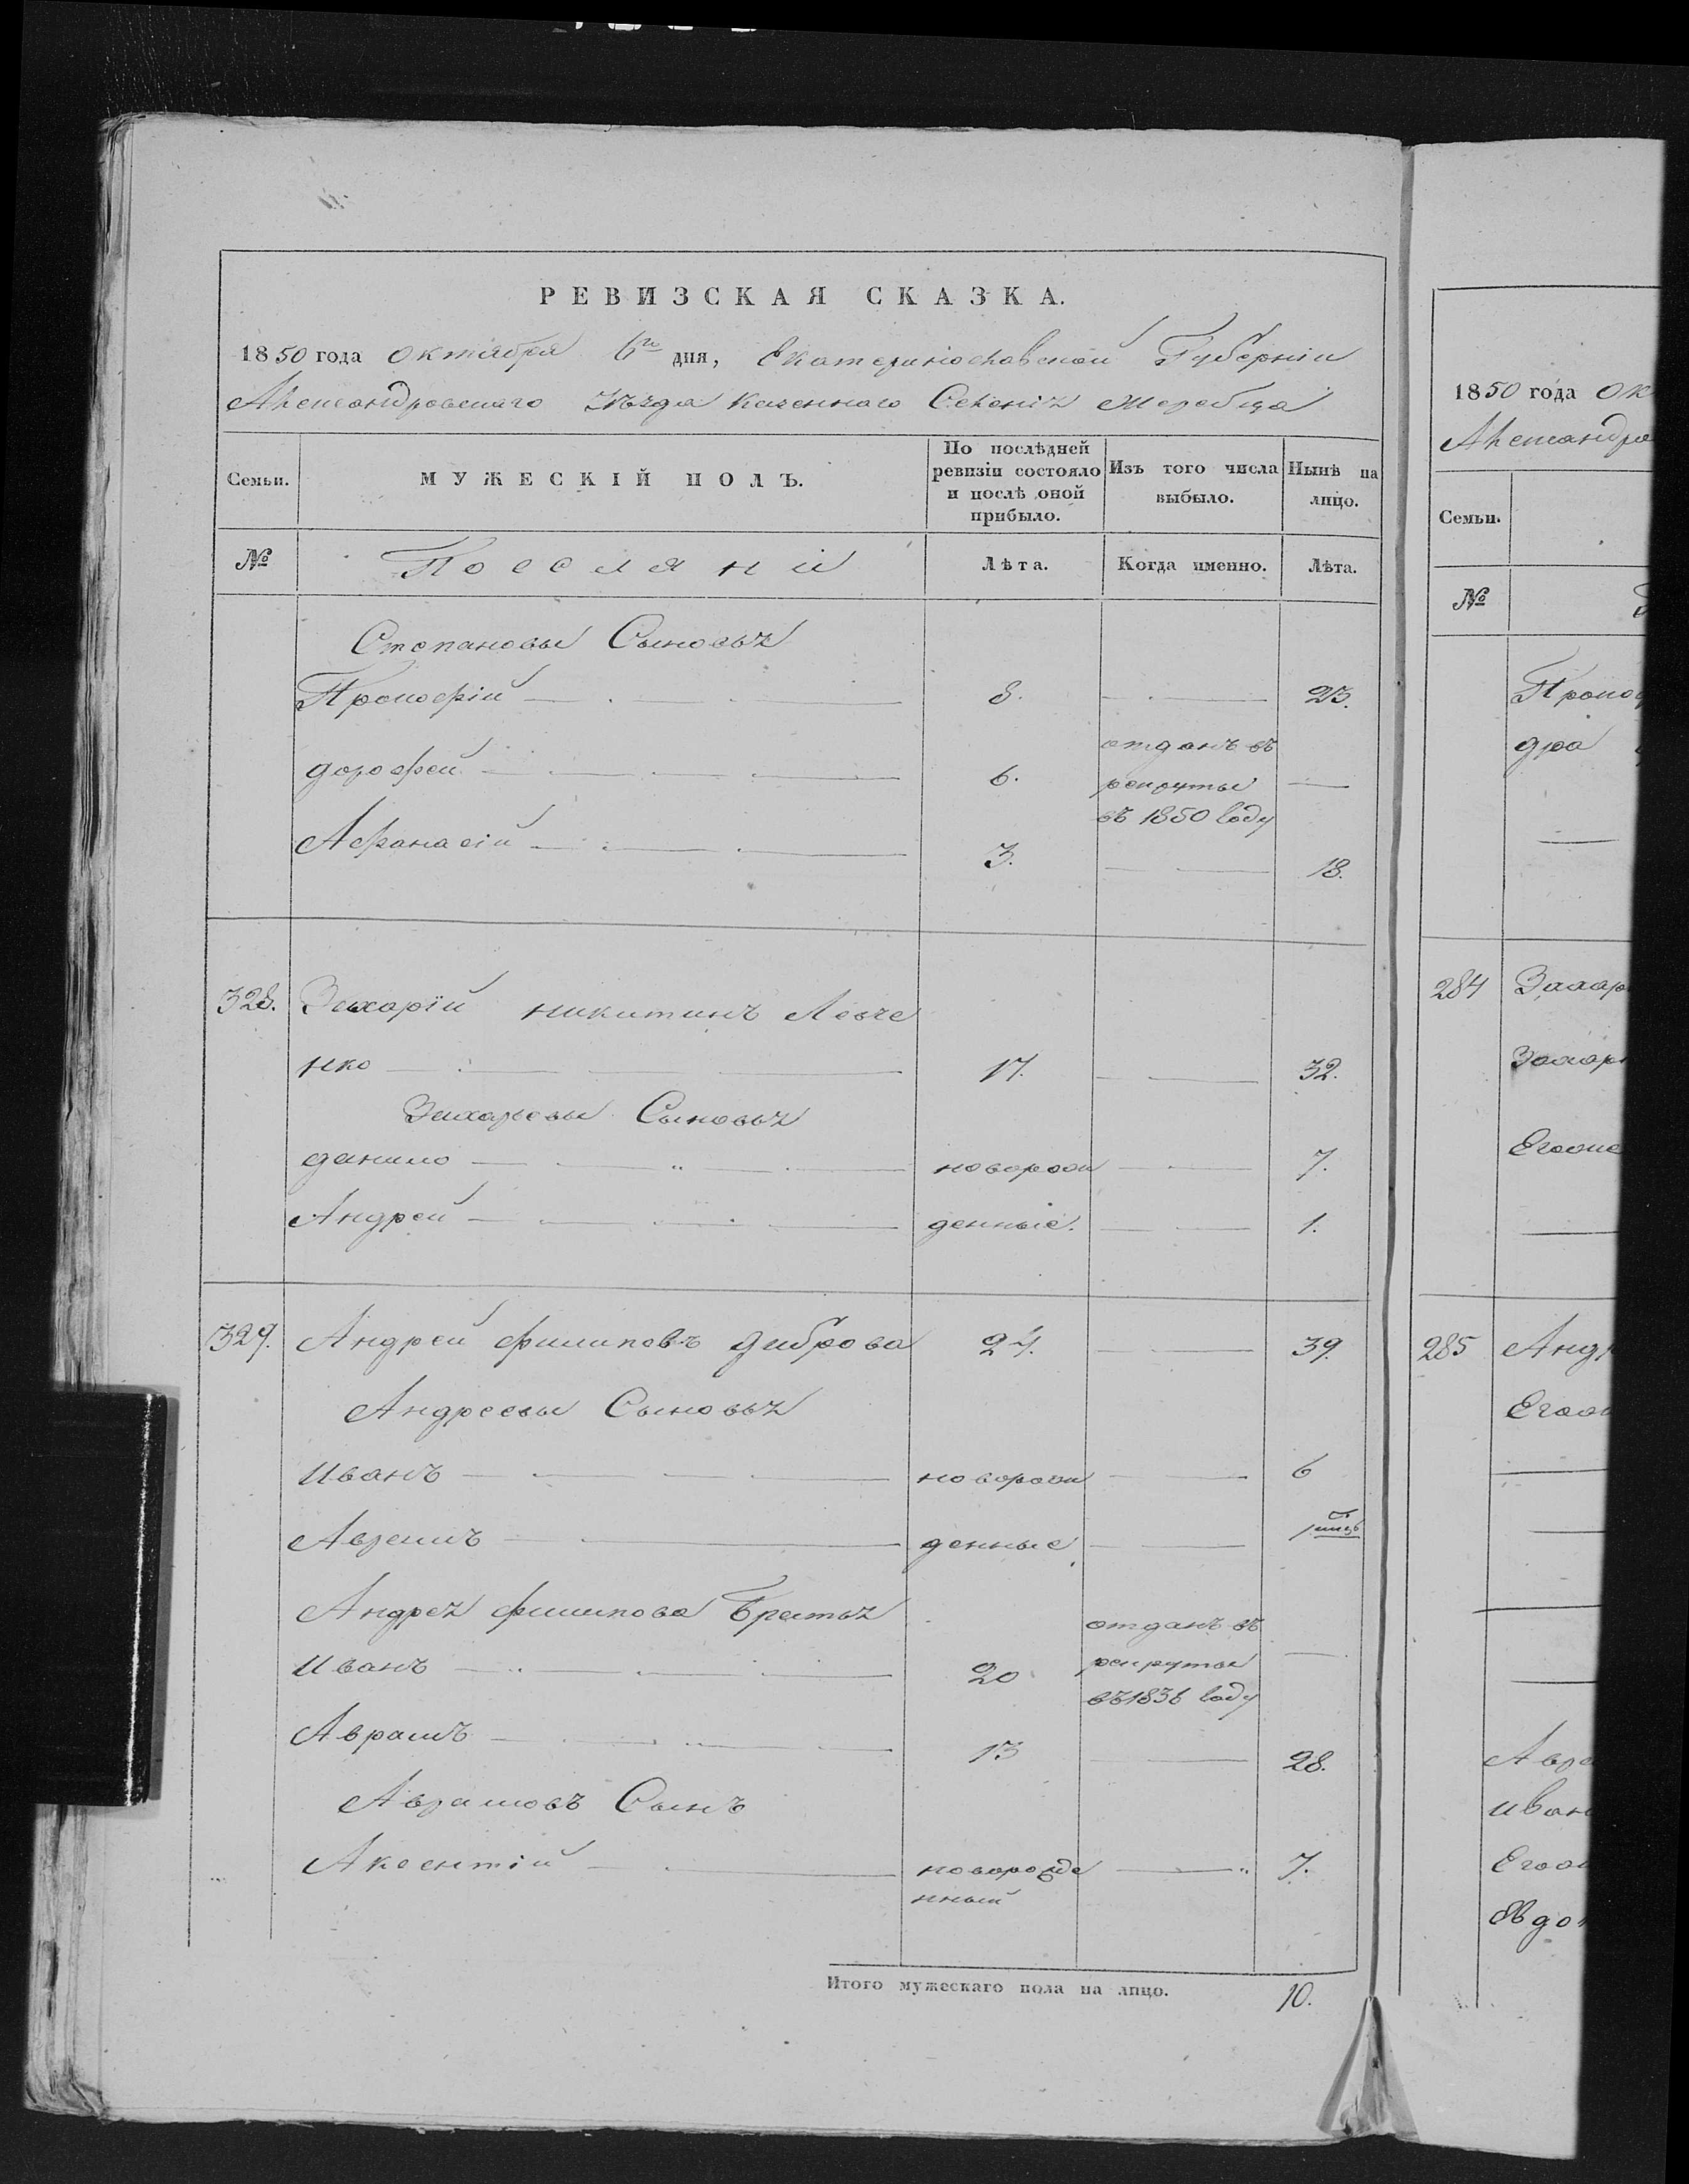 РЕВИЗСКАЯ СКАЗКА.
1850 года Октября 6го дня, Екатеринославской Губерніи
Александровскаго Уѣзда казеннаго Селенія Жеребца
Семьи.
МУЖЕСКІЙ ПОЛЪ.
По послѣдней ревизіи состояло и послѣ оной прибыло.
Изъ того числа выбыло.
Нынѣ на лицо.
№ Поселяни Лѣта. Когда именно. Лѣта.
Степановы Сыновья
Прокофій 8. 23.
дорофей 6. отданъ въ рекруты въ 1850 году
Афанасій 3. 18.
328. Захарій никитинъ Левче
нко 17. 32.
Захарьевы Сыновья
данило новорож 7.
Андрей денные. 1.
329. Андрей филиповъ диброва 24. 39.
Андреевы Сыновья
Иванъ новорож 6
Аврамъ денные 1
Андрея филипова Братья
Иванъ 20 отданъ въ рекруты въ 1836 году
Аврамъ 13 28.
Аврамовъ Сынъ
Аксентій новорожде 7.
нный
Итого мужескаго пола на лицо. 10.
1850 года Ок
Александро
Семьи.
№
Прокоф
дра
284 Захар
Захар
Егоже
285 Анд
Егож
Авра
иван
Егож
Евдо